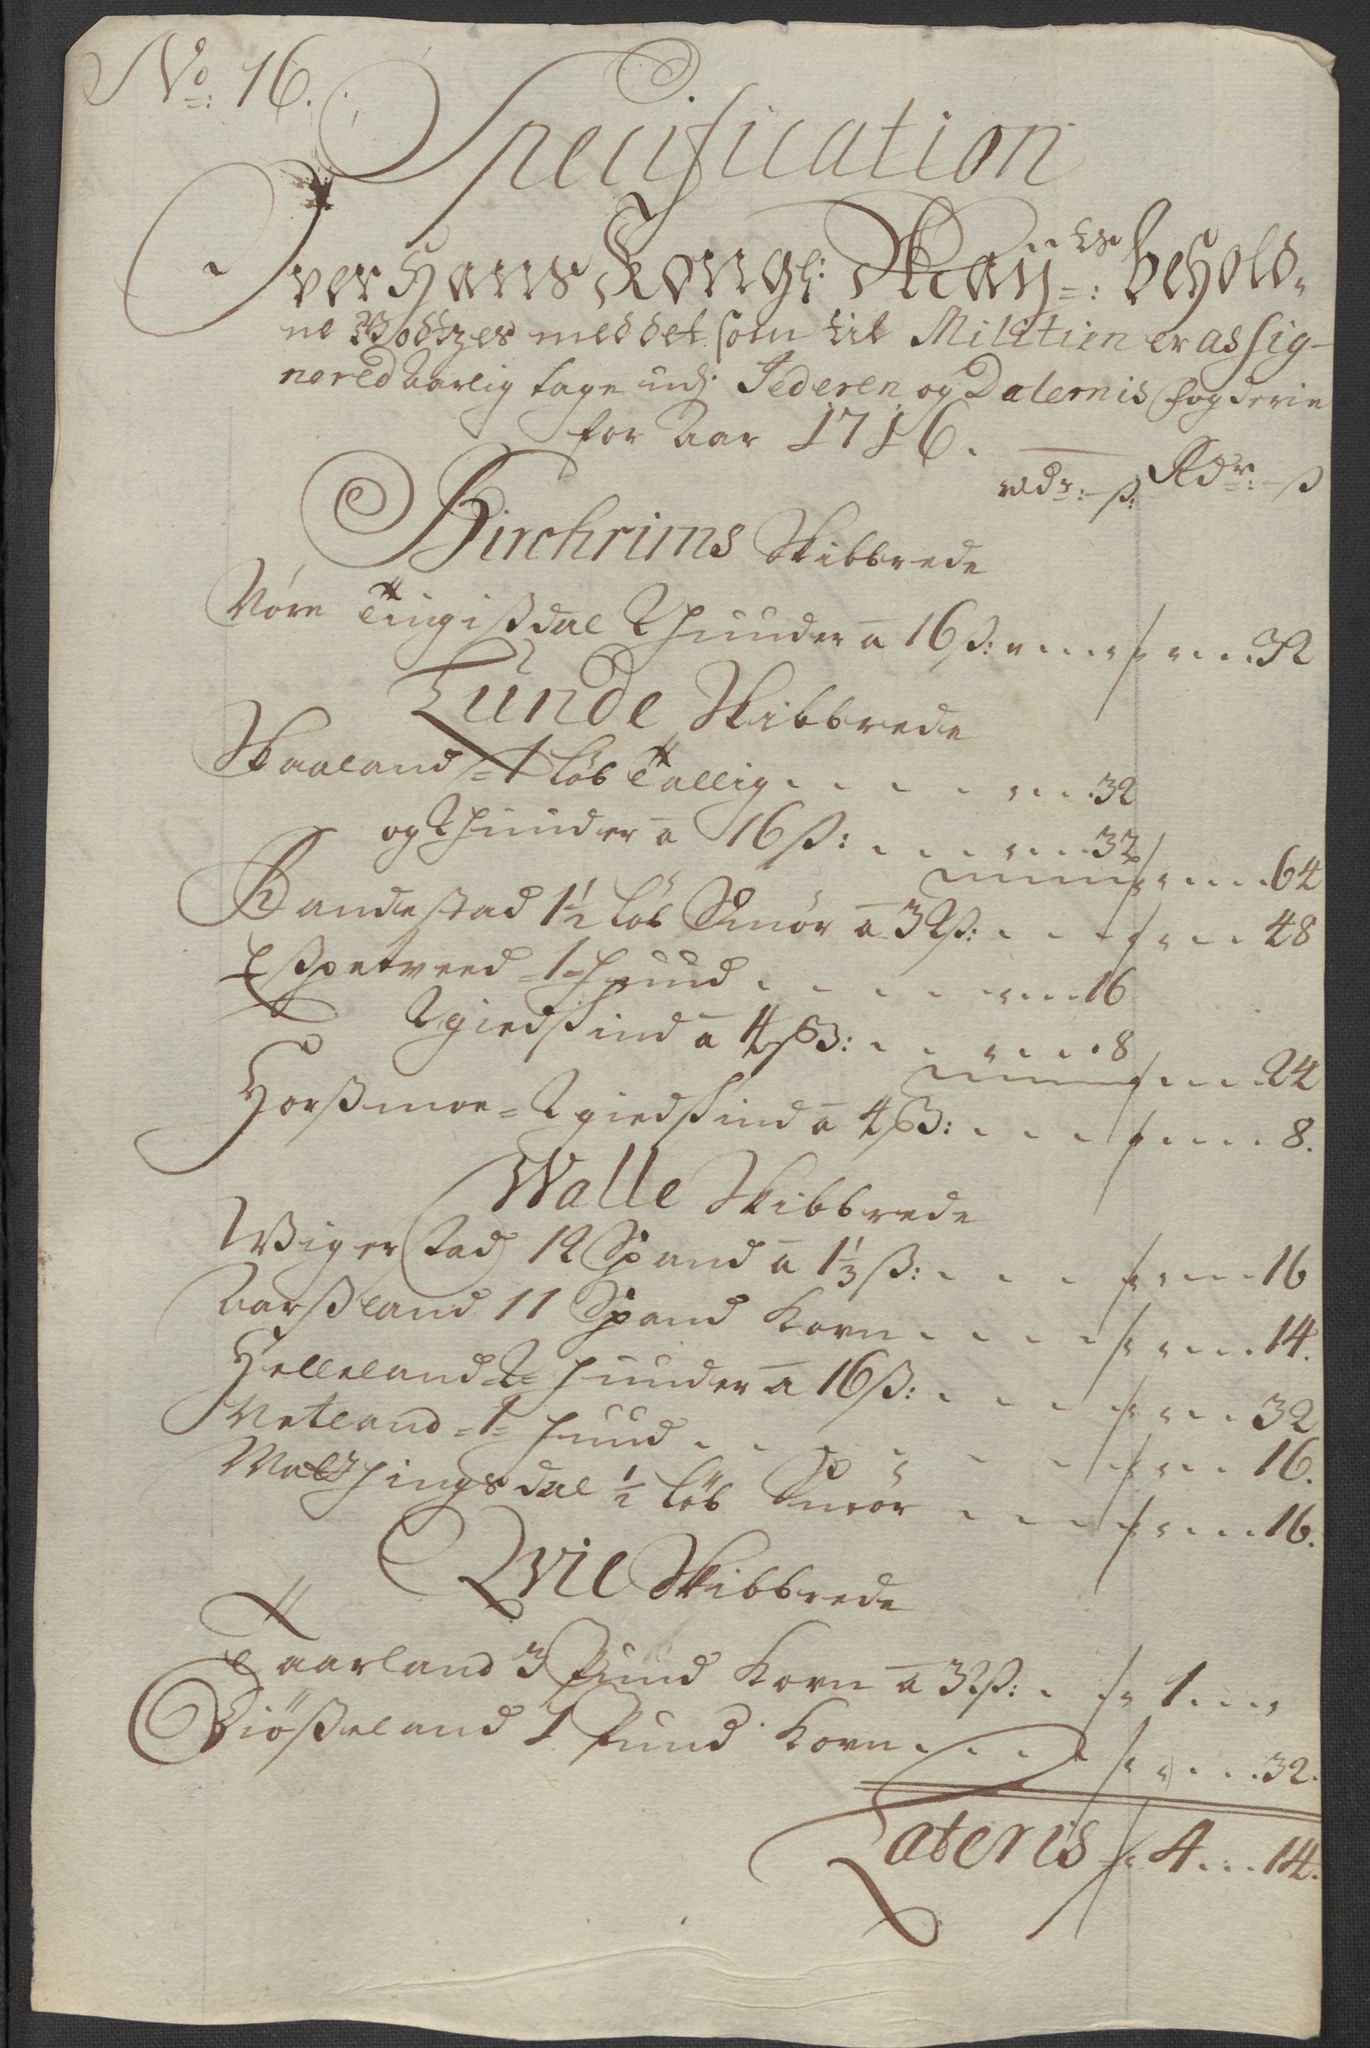 No: 16.
Specification
Over Hans Kongl: Maÿ:ts behold-
ne Godtzes med det som til Militien er assig-
nered Aarlig tage udj Jederen og Dalernis fogderie
for Aar 1716.
rdr: - ß: Rdr: - ß
Birchrims Skibbrede
Nøre Tingißdal 2 huuder a 16 ß: 32
Lunde Skibbrede
Skaaland = 1 løb Tallig 32
og 2 huuder a 16 ß: 32
64
Bandestad 1½ løb Smør a 32 ß: 48
Eßpetveed = 1 = huud 16
2 giedskind a 4 ß: 8
24
Horßmoe = 2 giedskind a 4 ß: 8.
Walle Skibbrede
Wigerstad 12 Spand a 1⅓ ß: 16
Aarßland 11 Spand Korn 14.
Helleland = 2 = huuder a 16 ß: 32
Netland = 1 = huud 16.
½ løb Smør 16.
Qvie Skibbrede
Taarland 3 Pund Korn a 32 ß: 1
Diößeland 1 Pund Korn 32.
Lateris 4 14.